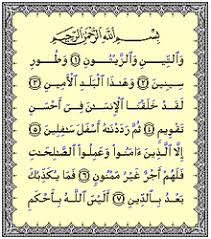 بِسْمِ ٱللَّهِ ٱلرَّحْمَٰنِ ٱلرَّحِيمِ
وَٱلتِّينِ وَٱلزَّيْتُونِ ١ وَطُورِ
سِينِينَ ٢ وَهَٰذَا ٱلْبَلَدِ ٱلْأَمِينِ ٣
لَقَدْ خَلَقْنَا ٱلْإِنسَٰنَ فِىٓ أَحْسَنِ
تَقْوِيمٍ ٤ ثُمَّ رَدَدْنَٰهُ أَسْفَلَ سَٰفِلِينَ ٥
إِلَّا ٱلَّذِينَ ءَامَنُوا۟ وَعَمِلُوا۟ ٱلصَّٰلِحَٰتِ
فَلَهُمْ أَجْرٌ غَيْرُ مَمْنُونٍ ٦ فَمَا يُكَذِّبُكَ
بَعْدُ بِٱلدِّينِ ٧ أَلَيْسَ ٱللَّهُ بِأَحْكَمِ